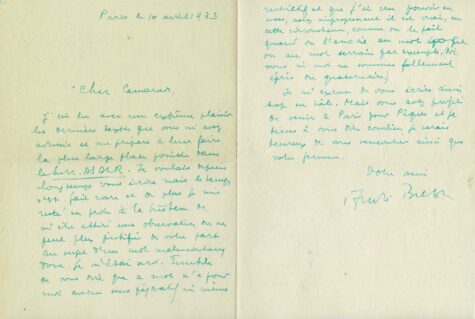 Paris le 10 avril 1933
Cher Camarade,
J'ai lu avec un extrême plaisir
les derniers textes que vous m'avez
adressés et me prépare à leur faire
la plus large place possible dans
le hors. ASDLR. Je voulais depuis
longtemps vous écrire mais le temps
s'est fait rare et de plus je suis
resté en proie à la tristesse de
m'être attiré une observation on ne
peut plus justifiée de votre part
au sujet d'un mot malencontreux
dont je m'étais servi. Inutile
de vous dire que ce mot n'a pour
moi aucun sens péjoratif ni même
restrictif et que j'ai cru pouvoir en
user, assez improprement il est vrai, en
cette circonstance, comme on le fait
quand on l'associe au mot époque
ou au mot terrain par exemple. (Ni
vous ni moi ne sommes follement
épris du quaternaire.)
Je m'excuse de vous écrire ainsi
trop en hâte. Mais vous avez projeté
de venir à Paris pour Pâques et je
tiens à vous dire combien je serais
heureux de vous rencontrer ainsi que
votre femme.
Votre ami
André Breton